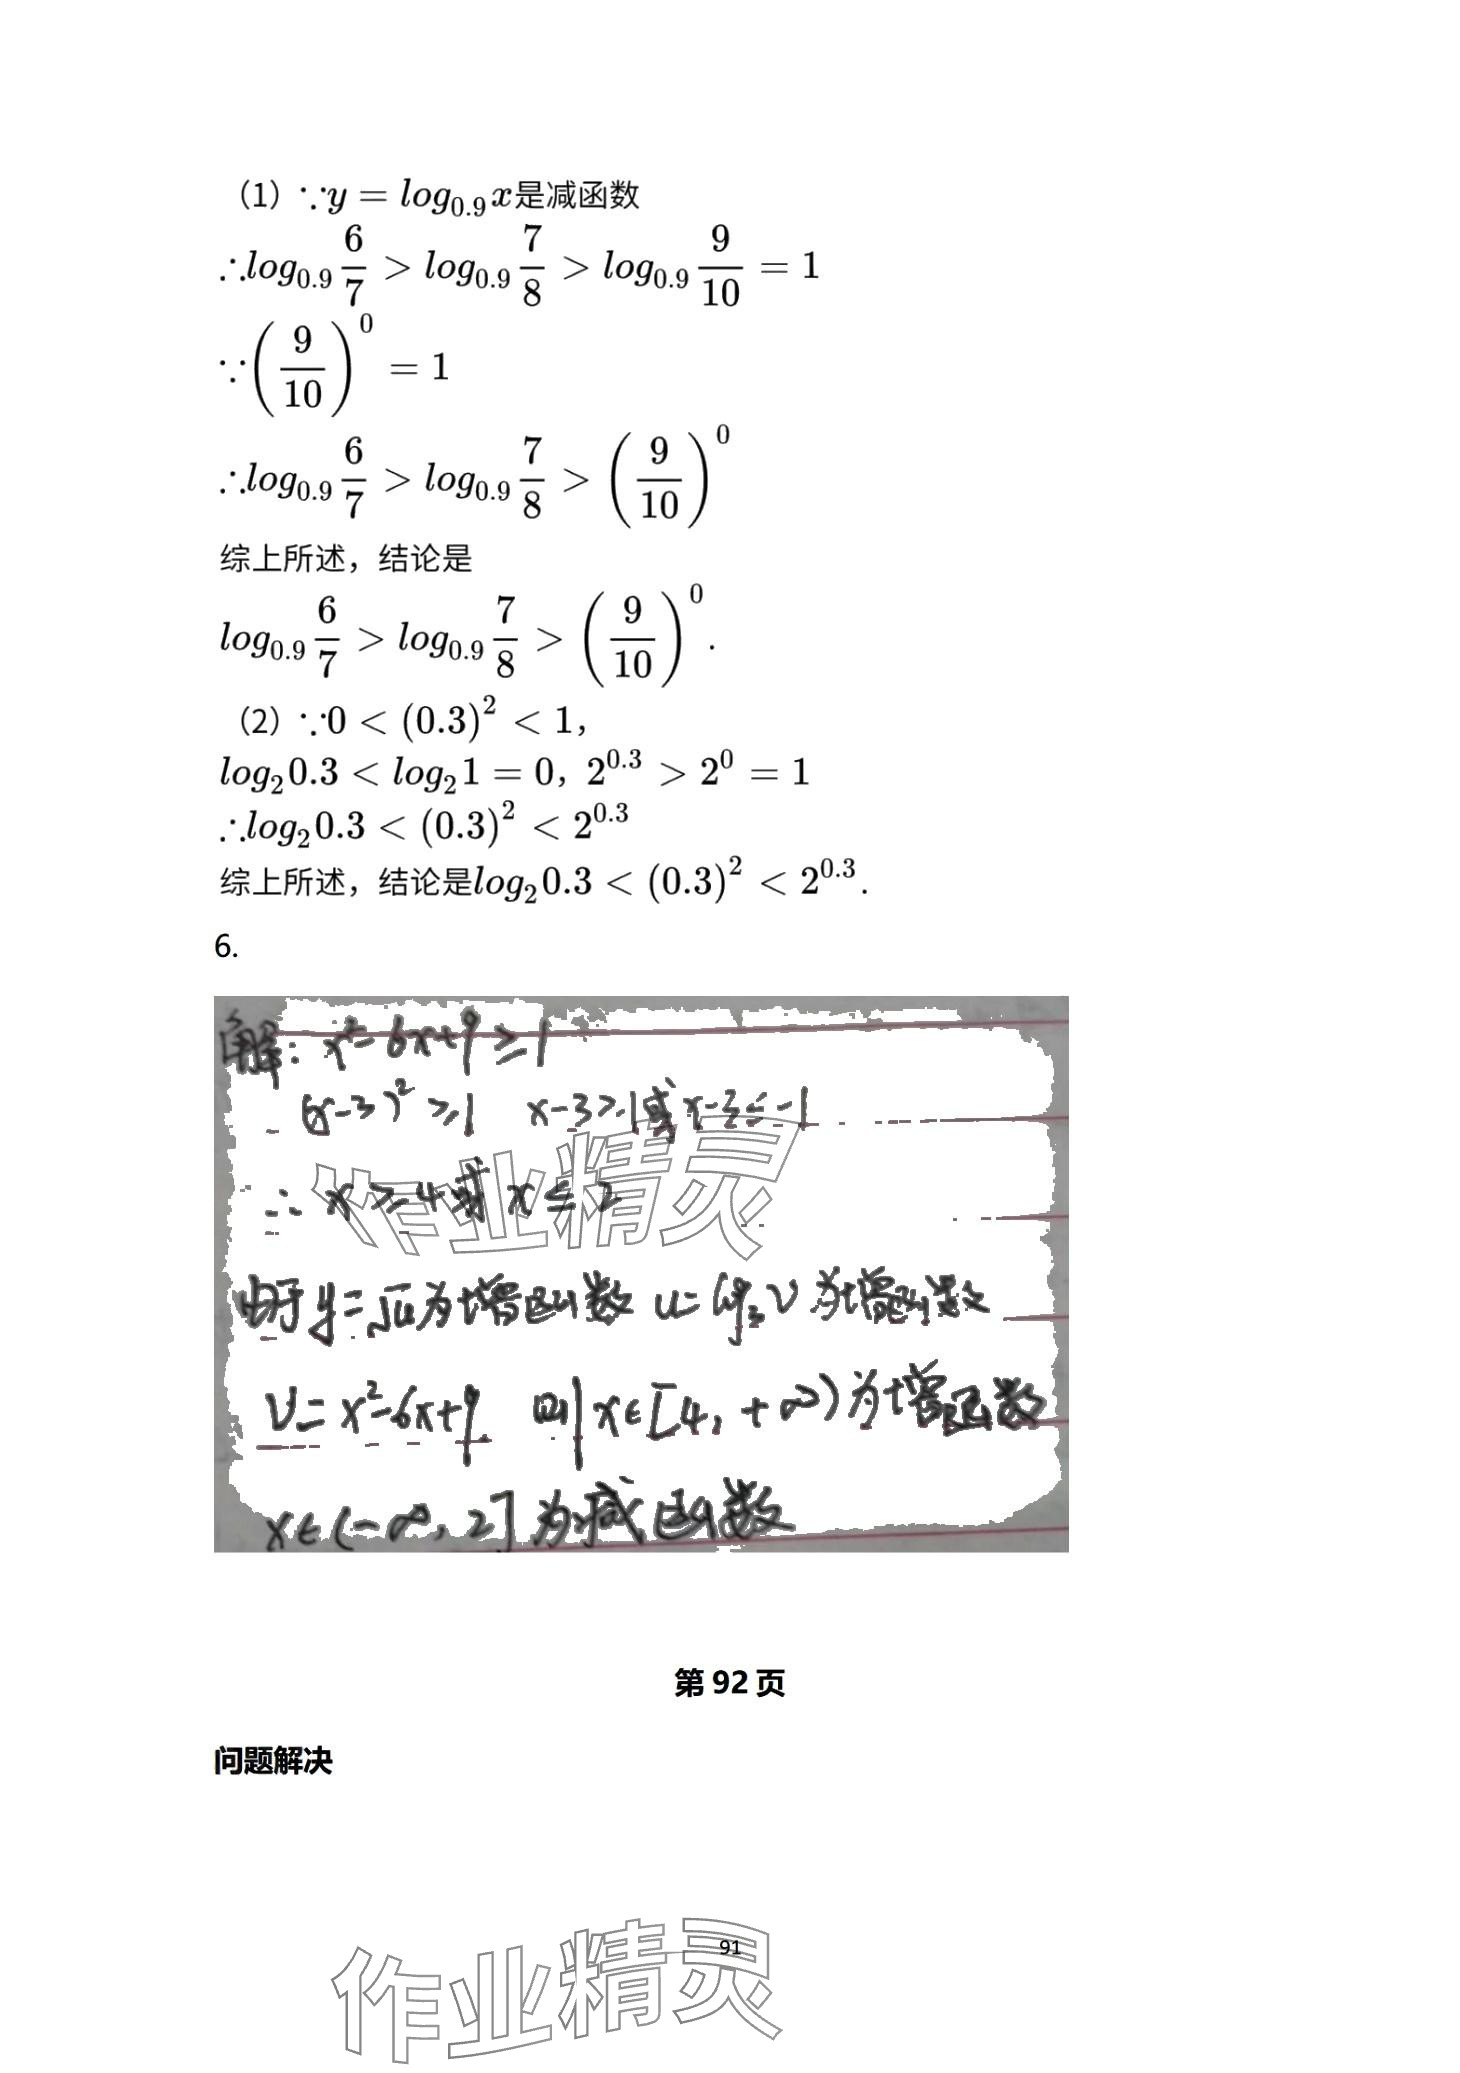 （1）∵y = log₀.₉x是减函数
∴log₀.₉ 6/7 > log₀.₉ 7/8 > log₀.₉ 9/10 = 1
∵(9/10)⁰ = 1
∴log₀.₉ 6/7 > log₀.₉ 7/8 > (9/10)⁰
综上所述，结论是
log₀.₉ 6/7 > log₀.₉ 7/8 > (9/10)⁰.
（2）∵0 < (0.3)² < 1，
log₂0.3 < log₂1 = 0，2^0.3 > 2⁰ = 1
∴log₂0.3 < (0.3)² < 2^0.3
综上所述，结论是log₂0.3 < (0.3)² < 2^0.3.
6.
解：x²-6x+9≥1
(x-3)²≥1 x-3≥1或x-3≤-1
∴x≥4或x≤2
作业精灵
由于y=√u为增函数 u=log₃v为增函数
v=x²-6x+9 四|x∈[4,+∞)为增函数
x∈(-∞,2]为减函数
第 92 页
问题解决
91
作业精灵